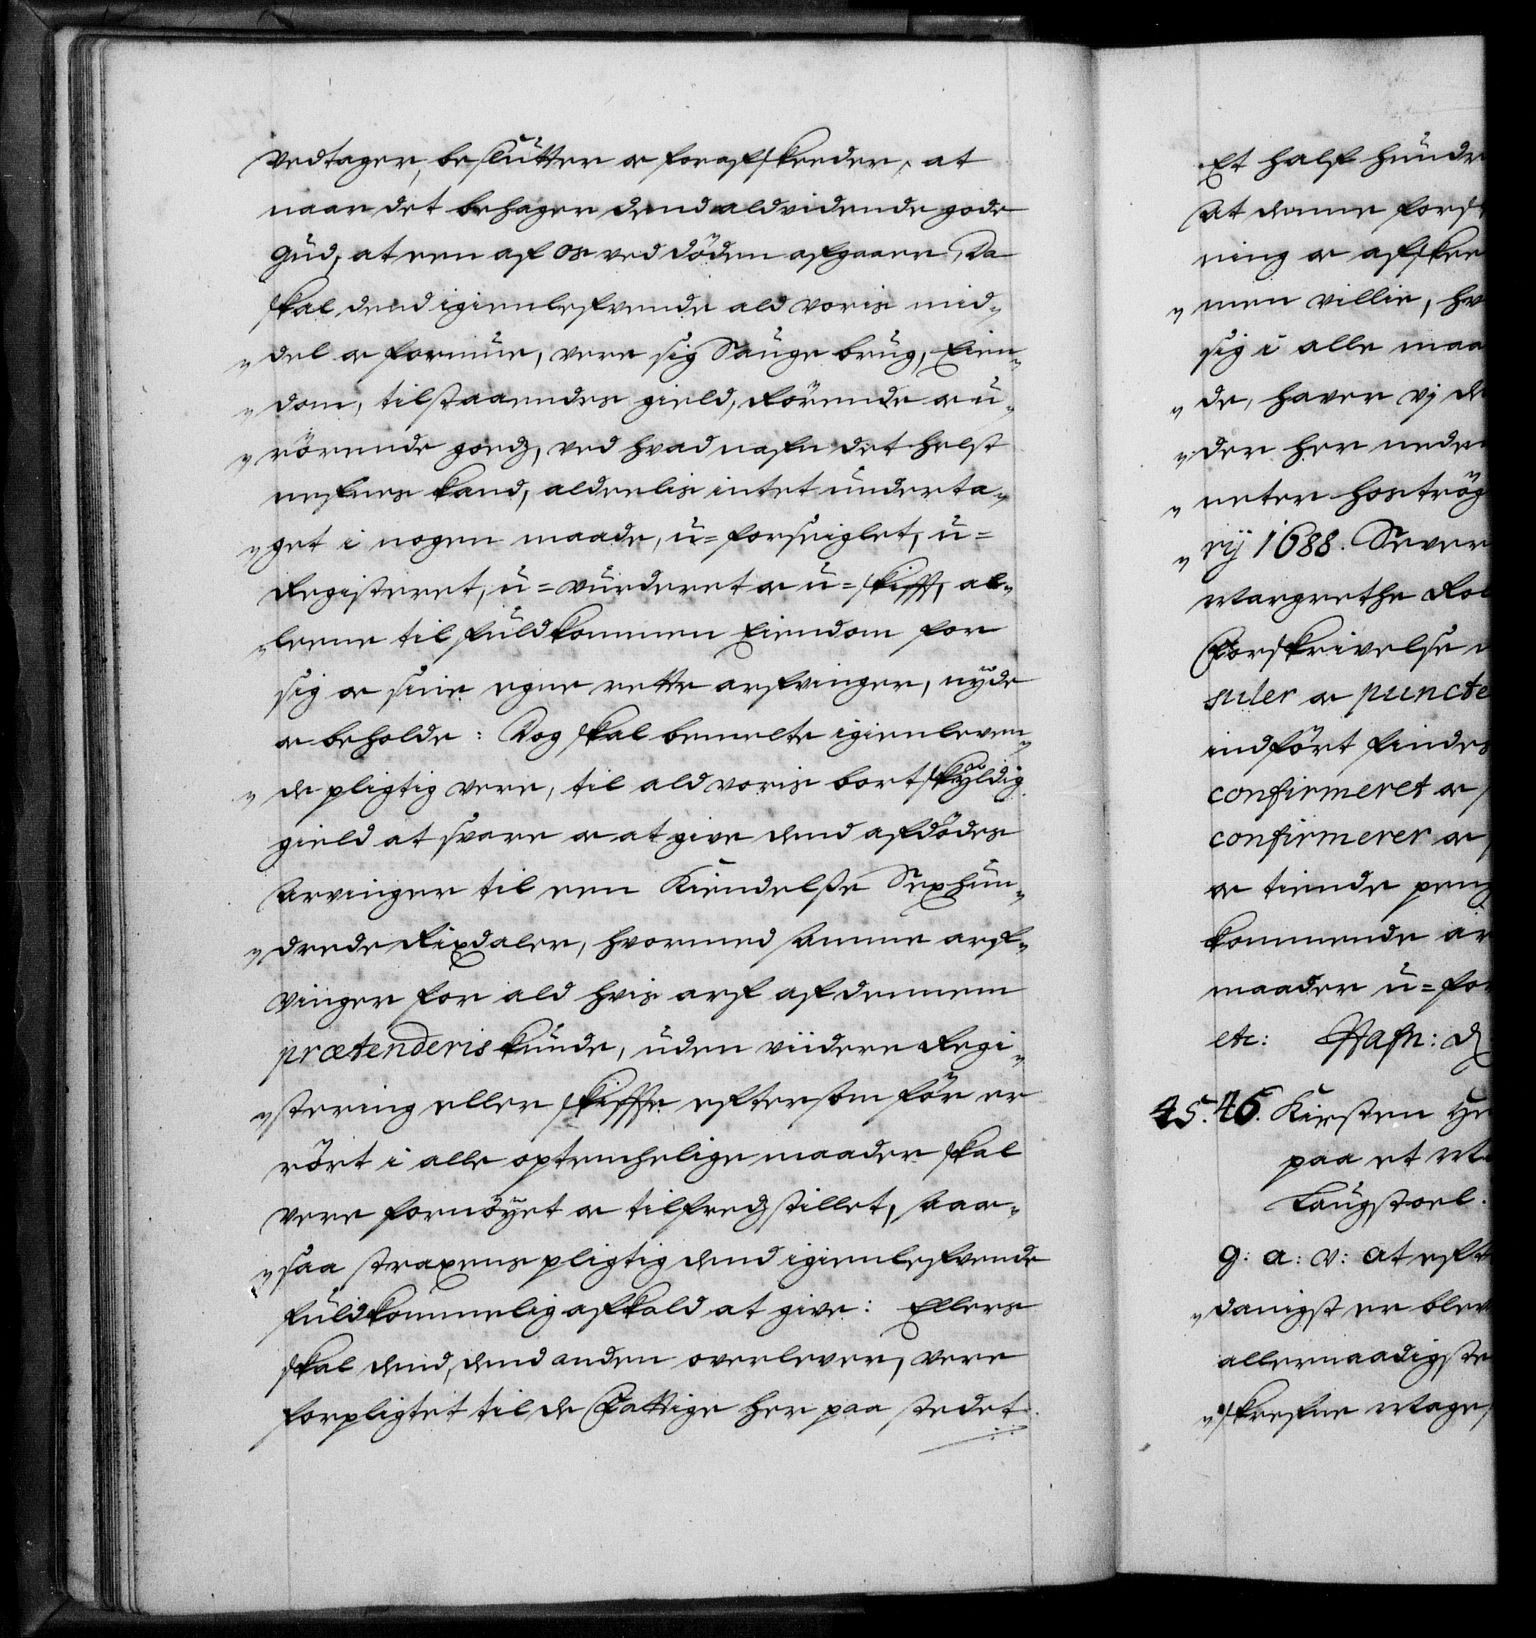 vedtager, beslutter oc forafskeeder, at
naar det behager dend aldvidende gode
Gud, at een af os ved döden afgaaer, Da
skal dend igienlefvende ald voris mid„
„del oc formue, vere sig Sauge brug, Eien„
„dom, tilstaaendes gield, Rörende oc u„
„rörende goedz, ved hvad nafn det helst
nefnes kand, aldeelis intet underta„
„get i nogen maade, u=forseiglet, u=
Registeret, u=vurderet oc u=skifft, al„
„leene til fuldkommen Eiendom for
sig oc sine egne rette arfvinger, nyde
oc beholde: Dog skal bemelte igienleven„
„de pligtig vere, til ald voris bortskyldig
gield at svare oc at give dend afdödes
Arvinger til een Kiendelse Sexhun„
„drede Rixdaler, hvormed samme arf„
vinger for ald hvis arf af dennem
prætenderis kunde, uden viidere Regi„
„stering eller skiffte eftersom för er
rört i alle optenchelige maader skal
vere fornöyet oc tilfredzstillet, saa„
„saa straxens pligtig dend igienlefvende
fuldkommelig afkald at give: Ellers
skal dend, dend anden overlever, vere
forpligtet til de Fattige her paa stedet
Et half hundre
At denne fors
ning oc afskee
„men villie, hv
sig i alle maa
„de, haver vj de
„der her neden
„neter hoströg
„rij 1688. Sever
Margrethe Rol
Forskrivelse
suler oc puncte
indfört findes
confirmeret oc
confirmerer oc
oc tiende peng
kommende ar
maader u=for
etc: Hafn: d
45. 46. Kirsten He
paa et
Laugstoel.
g: a: v: At eft
„danigst er blev
allernaadigste
„skrefne Mage